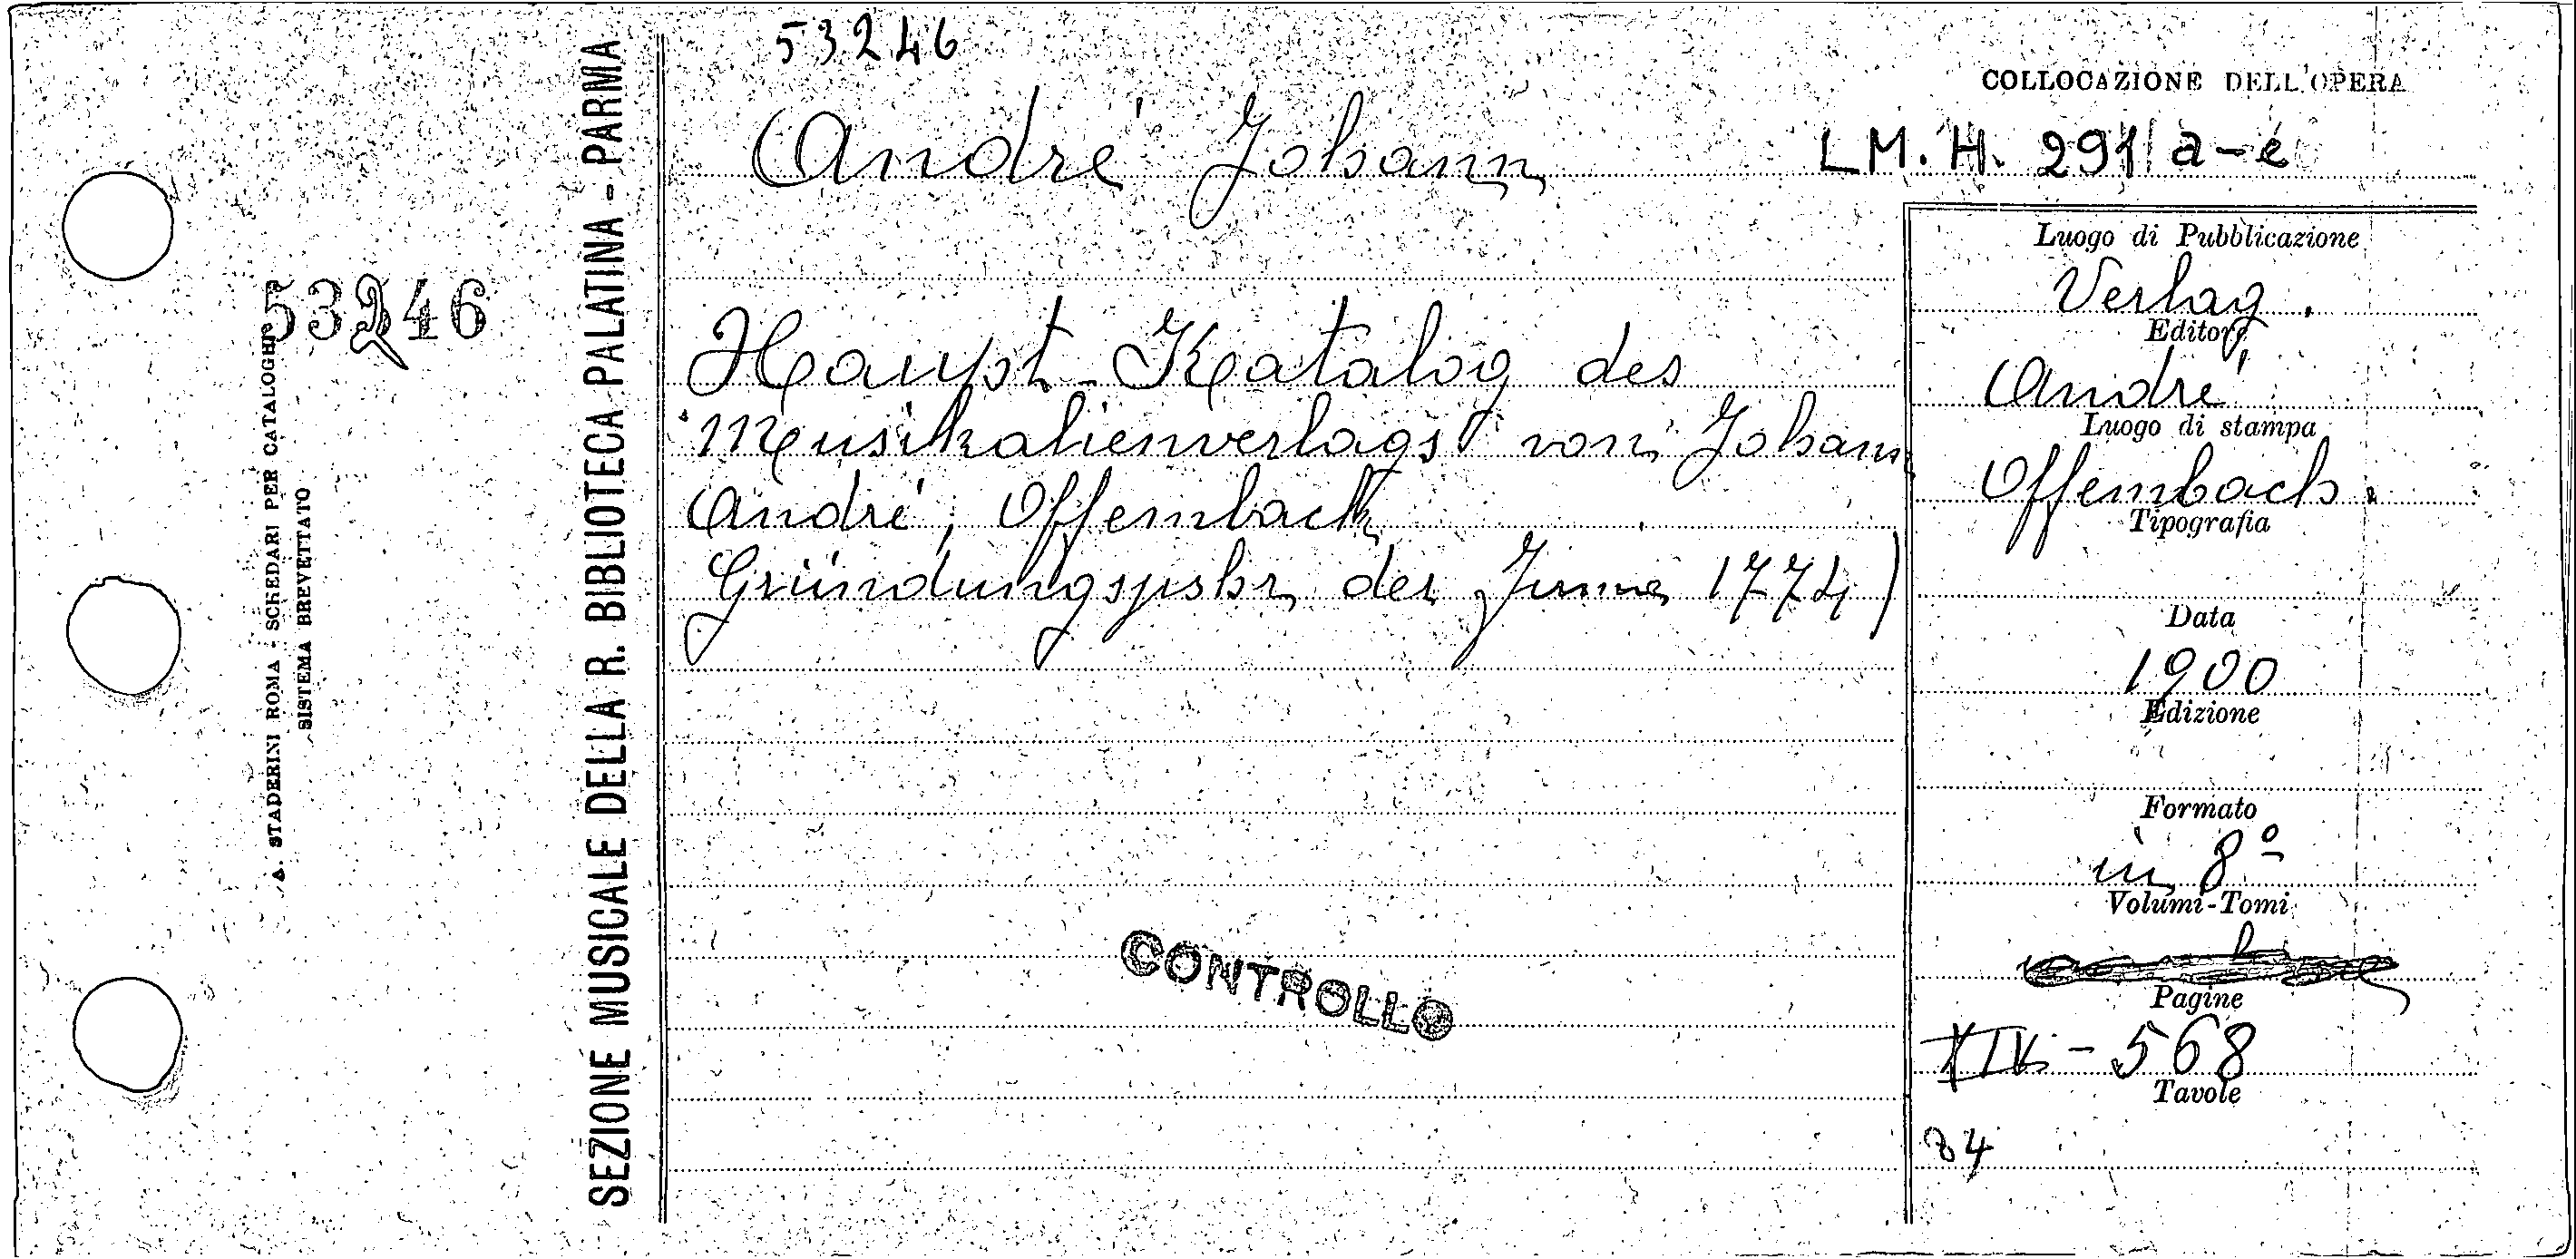 53246
COLLOCAZIONE DELL'OPERA
André Johann
LM. H. 291 a-e
53246
A. STADERINI ROMA - SCHEDARI PER CATALOGHI
SISTEMA BREVETTATO
SEZIONE MUSICALE DELLA R. BIBLIOTECA PALATINA - PARMA
Haupt-Katalog des
Musikalienverlags von Johann
André, Offenbach
Gründungsjahr der Firma 1774)
Luogo di Pubblicazione
Verlag.
Editore
André
Luogo di stampa
Offenbach.
Tipografia
Data
1900
Edizione
Formato
in 8º
Volumi-Tomi
Pagine
XIV - 568
Tavole
84
CONTROLLO